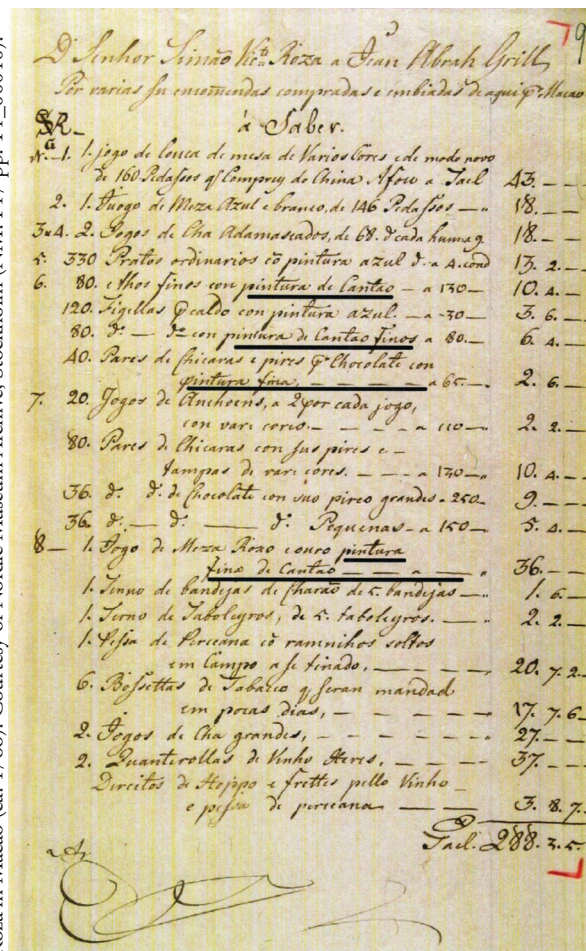 9
D Senhor Simão Victe Roza a Jean Abrah Grill
Por varias su encomendas compradas e embiadas de aqui pa Macao
SR_ à Saber.
No 1. 1. jogo de louca de mesa de Varios Cores e de modo novo
de 160 Pedassos q Comprey do China Afou a Tael 43. — —
2. 1. Juogo de Meza Azul e branco, de 146 Pedassos — „ 18. — —
3 u 4. 2. Jogos de Cha Adamascados, de 68. d cada hum a 9. 18. — —
5. 330 Pratos ordinarios cõ pintura azul d. a 4. cond 13. 2. —
6. 80. finos con pintura de Cantao — a 130 — 10. 4. —
120. Tigellas caldo con pintura azul. — a 30 — 3. 6. —
80. do — do con pintura de Cantao finos a 80. — 6. 4. —
40. Pares de Chicaras e pires pa Chocolate con
pintura fina, — — — — a 65. — 2. 6. —
7. 20. Jogos de Anchoens, a 2 por cada jogo,
con vari cores. — — — — a 110 — 2. 2. —
80. Pares de Chicaras con sus pires e —
tampas de vari cores. — — — a 130 — 10. 4. —
36. d. d. de Chocolate con suo pires grandes a 250 — 9. — —
36. d. — d. — d. Pequenas — a 150 — 5. 4. —
8 — 1. Jogo de Meza Roxo e ouro pintura
fino de Cantao — — a — „ 36. — —
1. Tinno de bandejas de Charão de 5. bandejas — „ 1. 6. —
1. Terno de Taboleyros, de 5. taboleyros. — „ 2. 2. —
1. Pessa de Perceana cõ ramnihos soltos
em Campo a se tinado, — — — „ 20. 7. 2 —
6. Bossettas de Tabaco q seran mandad
em pocas dias, — — — — „ 17. 7. 6 —
2. Jogos de Cha grandes, — — — — „ 27 — —
2. Quanterollas de Vinho Heres, — — — „ 37. — —
Direitos de Hoppo e frettes pello Vinho —
e pessa de perceana — — — 3. 8. 7.
Tael. 288. 3. 5.